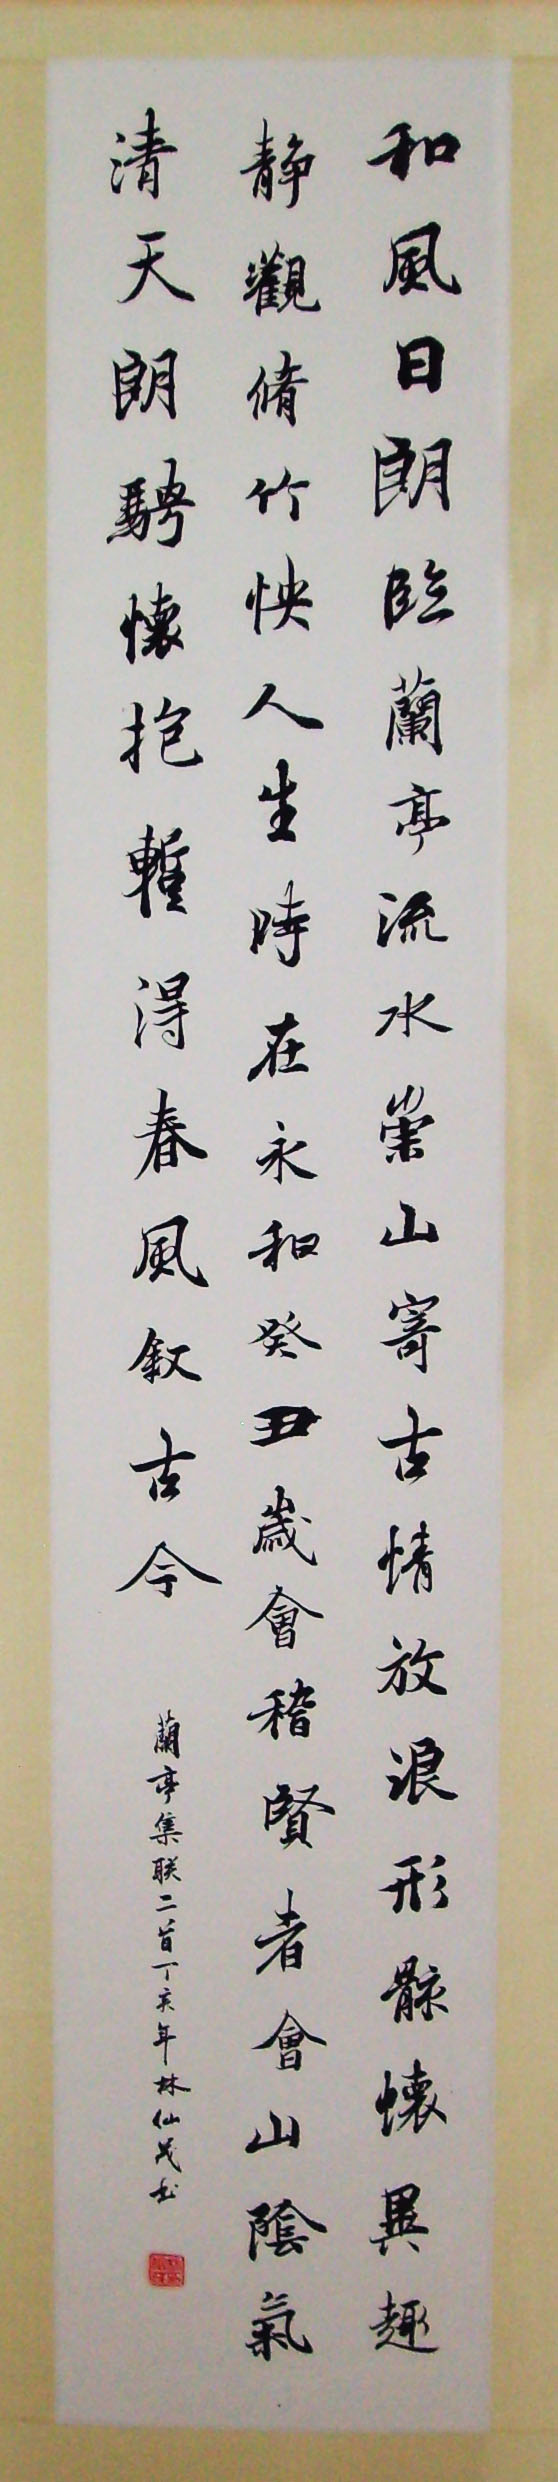 和風日朗臨蘭亭流水崇山寄古情放浪形骸懷異趣
静觀脩竹怏人生時在永和癸丑歲會稽賢者會山陰氣
清天朗騁懷抱暫得春風叙古今
蘭亭集联二首丁亥年林仙茂书